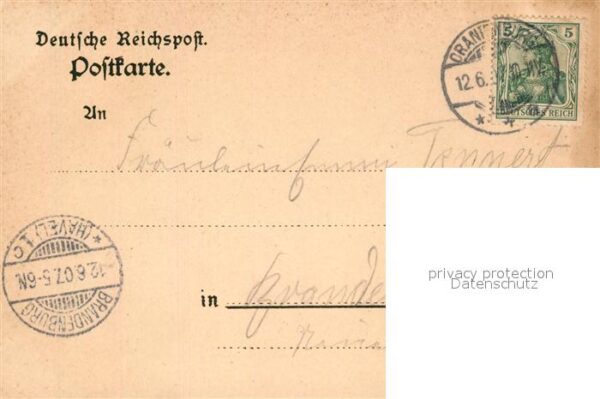 Deutsche Reichspost.
Postkarte.
An
Fräulein
in
ORANIENBURG
12.6.
5
DEUTSCHES REICH
BRANDENBURG
12.6.07.5-6N.
* (HAVEL) 1 c
privacy protection
Datenschutz